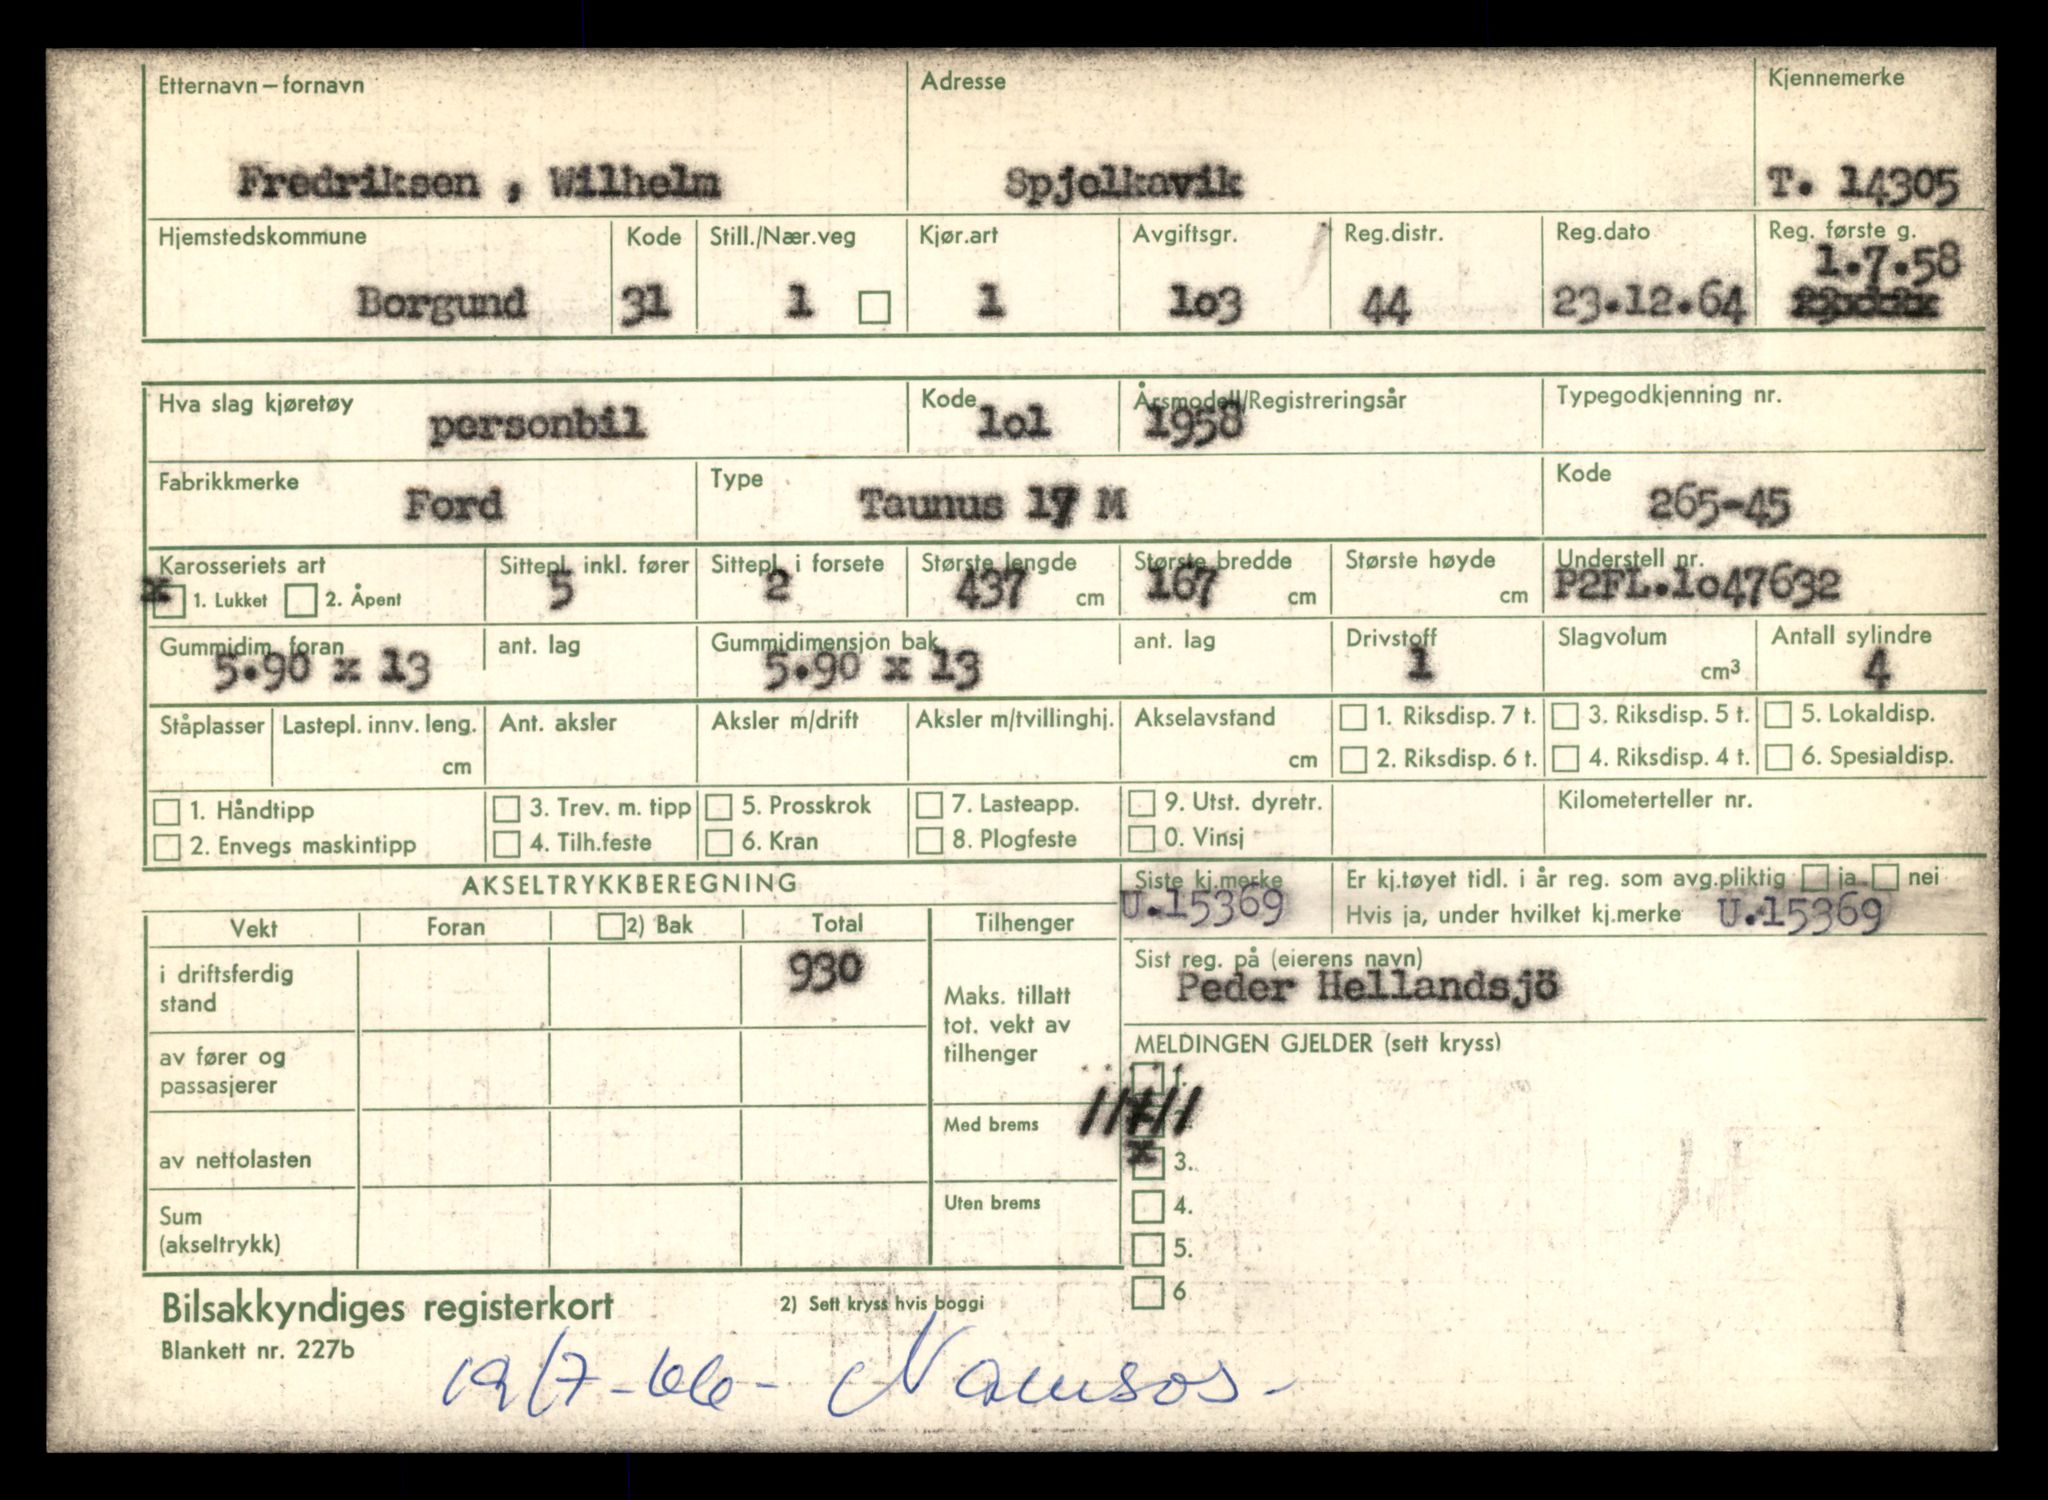 Etternavn – fornavn Adresse Kjennemerke
Fredriksen , Wilhelm Spjelkavik T. 14305
Hjemstedskommune Kode Still./Nær.veg Kjør.art Avgiftsgr. Reg.distr. Reg.dato Reg. første g.
1.7.58
Borgund 31 1 1 1o3 44 23.12.64
Hva slag kjøretøy Kode Årsmodell/Registreringsår Typegodkjenning nr.
personbil 1o1 1958
Fabrikkmerke Type Kode
Ford Taunus 17 M 265-45
Karosseriets art Sittepl. inkl. fører Sittepl. i forsete Største lengde Største bredde Største høyde Understell nr.
x 1. Lukket 2. Åpent 5 2 437 cm 167 cm cm P2FL.1o47632
Gummidim. foran ant. lag Gummidimensjon bak ant. lag Drivstoff Slagvolum Antall sylindre
5.90 x 13 5.90 x 13 1 cm3 4
Ståplasser Lastepl. innv. leng. Ant. aksler Aksler m/drift Aksler m/tvillinghj. Akselavstand 1. Riksdisp. 7 t. 3. Riksdisp. 5 t. 5. Lokaldisp.
cm cm 2. Riksdisp. 6 t. 4. Riksdisp. 4 t. 6. Spesialdisp.
1. Håndtipp 3. Trev. m. tipp 5. Prosskrok 7. Lasteapp. 9. Utst. dyretr. Kilometerteller nr.
2. Envegs maskintipp 4. Tilh.feste 6. Kran 8. Plogfeste 0. Vinsj
AKSELTRYKKBEREGNING Siste kj.merke Er kj.tøyet tidl. i år reg. som avg.pliktig ja nei
U.15369 Hvis ja, under hvilket kj.merke U.15369
Vekt Foran 2) Bak Total Tilhenger
i driftsferdig stand 930 Sist reg. på (eierens navn)
Peder Hellandsjö
Maks. tillatt
tot. vekt av
tilhenger
MELDINGEN GJELDER (sett kryss)
av fører og
passasjerer
1.
Med brems
av nettolasten x 3.
Uten brems 4.
Sum
(akseltrykk) 5.
6
Bilsakkyndiges registerkort 2) Sett kryss hvis boggi
Blankett nr. 227b
19/7-66- Namsos-